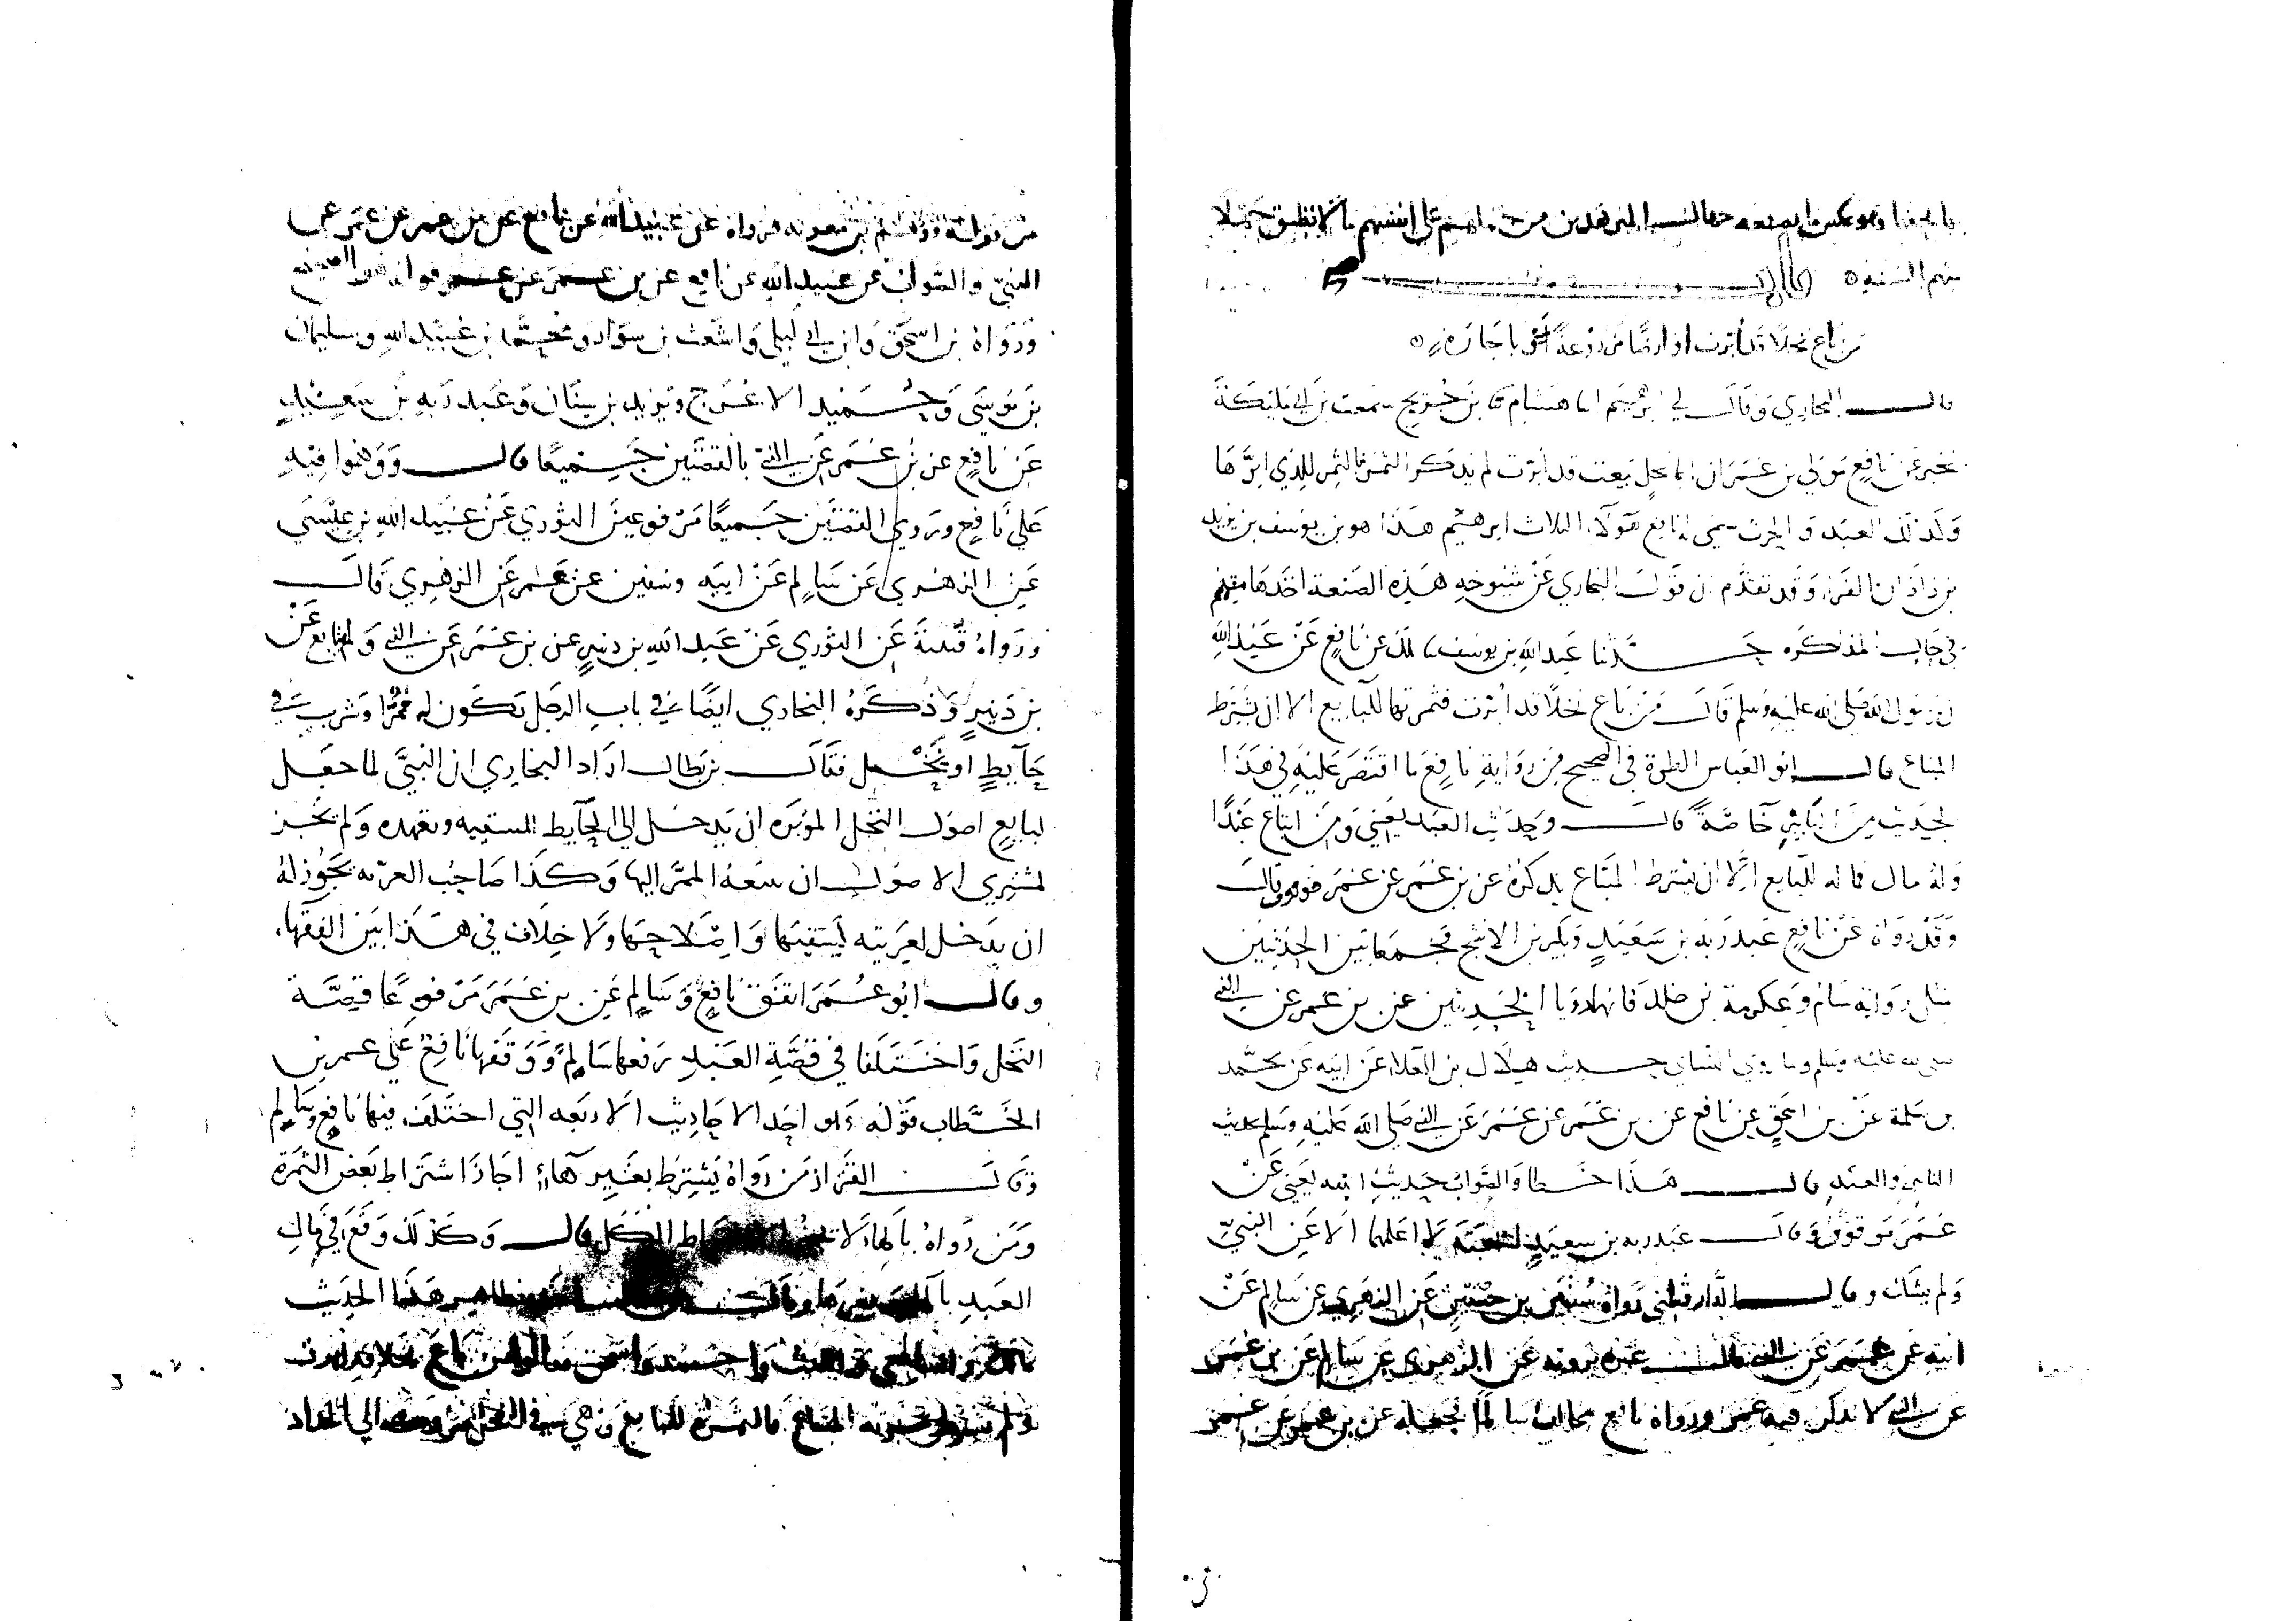 منهم السنة ه باب
من باع نخلا قد أبرت او ارضا مزروعة او باجارة ه
قال البخاري وقال لي ابرهيم اما هشام بن جريج سمعت بن ابي مليكة
يخبر عن نافع مولي بن عمر ان ايما نخل بيعت قد ابرت لم يذكر الثمر فالثمر للذي ابرها
وكذلك العبد والحرث سمي له نافع هولاء الثلاث ابرهيم هذا هو بن يوسف بن يزيد
بن زاذان الفراء وقد تقدم ان قول البخاري عن شيوخه هذه الصنعة اخذها منهم
في حال المذاكره حدثنا عبد الله بن يوسف ملك عن نافع عن عبد الله
ان رسول الله صلي الله عليه وسلم قال من باع نخلا قد ابرت فثمرتها للبايع الا ان يشترط
المبتاع قال ابو العباس الطرة في الصحيح من رواية نافع ما اقتصر عليه في هذا
الحديث من التابير خاصة قال وحديث العبد يعني ومن ابتاع عبدا
وله مال فماله للبايع الا ان يشترط المبتاع يذكره عن بن عمر عن عمر قال
وقد رواه عن نافع عبد ربه بن سعيد وبكير بن الاشج فجمعا بين الحديثين
مثل رواية سالم وعكرمة بن خلد فانهما رويا الحديثين عن بن عمر عن النبي
صلى الله عليه وسلم وما روي النساي حديث هلال بن العلا عن ابيه عن محمد
بن سلمة عن بن اسحق عن نافع عن بن عمر عن عمر عن النبي صلي الله عليه وسلم بحديث
النخل والعبد قال هذا خطا والصواب حديث يعني عن
عمر موقوفا وقال عبد ربه بن سعيد لا اعلمهما الا عن النبي
ولم يشك وقال الدارقطني رواه سفين بن حسين عن الزهري عن سالم عن
ابيه عن عمر عن النبي قال غيره يرويه عن الزهري عن سالم عن بن عمر
عن النبي لا يذكر فيه عمر ورواه نافع مخالف سالما فجعله عن بن عمر عن عمر
فرواه عن عبيد الله عن نافع عن بن عمر عن عمر عن
النبي والصواب عن عبيد الله عن نافع عن بن عمر عن عمر قوله
ورواه بن اسحق وابن ابي ليلى واشعث بن سوار ومحمد بن عبيد الله وسليمان
بن موسى وحميد الاعرج ويزيد بن سنان وعبد ربه بن سعيد
عن نافع عن بن عمر عن النبي بالقصتين جميعا قال ووهنوا فيه
علي نافع وروي القصتين جميعا مرفوعين الثوري عن عبيد الله بن عيسى
عن الزهري عن سالم عن ابيه وسفين عن معمر عن الزهري قال
ورواه قبيصة عن الثوري عن عبد الله بن دينر عن بن عمر عن النبي ولم يتابع عن
بن دينر وذكره البخاري ايضا في باب الرجل تكون له ممر او شرب في
حايط او نخل فقال بن بطال اراد البخاري ان النبي لما جعل
لبايع اصول النخل الموبره ان يدخل الي الحايط لسقيه وتعهده ولم يجز
لمشتري الاصول ان يمنعه الممر اليها وكذا صاحب العريه يجوز له
ان يدخل لعريته ليسقيها واصلاحها ولا خلاف في هذا بين الفقهاء
وقال ابو عمر اتفق نافع وسالم عن بن عمر مرفوعا قصة
النخل واختلفا في قصة العبد رفعها سالم ووقفها نافع علي عمر بن
الخطاب قوله وهو احد الاحاديث الاربعه التي اختلف فيها نافع وسالم
وقال القزاز من رواه يشترط بغير هاء اجاز اشتراط بعض الثمرة
ومن رواه بالهاء لا الكل قال وكذلك وقع في مال
العبد بظاهر هذا الحديث
مالك والشافعي والليث واحمد واسحق فقالوا من باع نخلا قد ابرت
ولم يشترط ثمرته المبتاع فالثمرة للبايع وهي في النخل متروكه الي الجداد